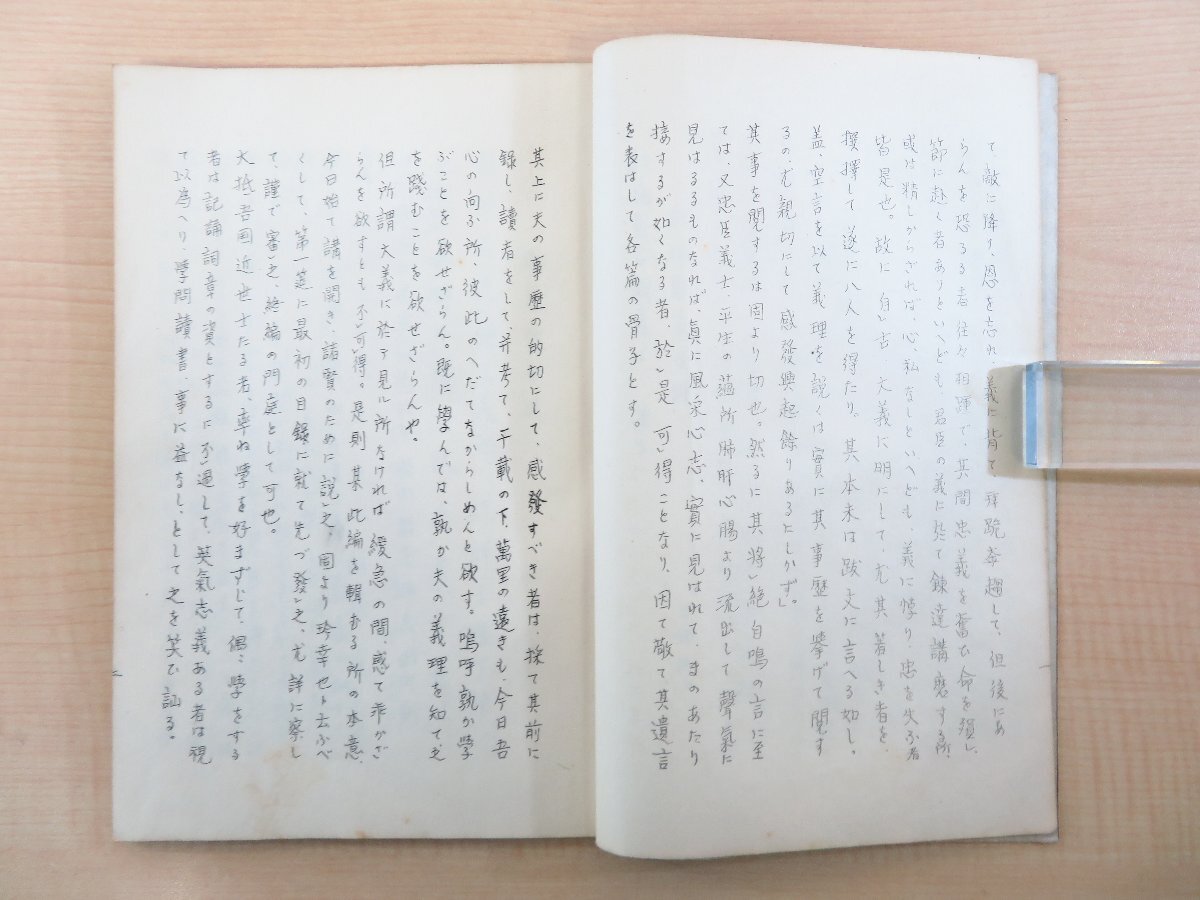 て、敵に降り、恩を忘れ、義に背て、拜跪奔趨して、但後にあ
らんを恐るる者往々相踵で、其間忠義を奮ひ命を殞し、
節に赴く者ありといへども、君臣の義に於て錬達講磨する所、
或は精しからざれば、心、私なしといへども、義に悖り、忠を失ふ者
皆是也。故に自レ古、大義に明にして、尤其著しき者を、
撰擇して遂に八人を得たり。其本末は跋文に言へる如し。
蓋、空言を以て義理を説くは實に其事歴を擧げて閲す
るの、尤親切にして感發興起餘りあるにしかず。
其事を閲するは固より切也。然るに其將レ絶自鳴の言に至
ては、又忠臣義士、平生の蘊所肺肝心腸より流出して聲氣に
見はるるものなれば、眞に風采心志、實に見はれて、まのあたり
接するが如くなる者、於レ是可レ得ことなり、因て敢て其遺言
を表はして各篇の骨子とす。
其上に夫の事歴の的切にして、感發すべき者は、採て其前に
録し、讀者をして、并考て、千載の下、萬里の遠きも、今日吾
心の向ふ所、彼此のへだてなからしめんと欲す。嗚呼孰か學
ぶことを欲せざらん。既に學んでは、孰か夫の義理を知て之
を踐むことを欲せざらんや。
但所謂大義に於ア見ル所なければ緩急の間、惑て乖かざ
らんを欲すとも不レ可レ得。是則某此編を輯むる所の本意、
今日始て講を開き、諸賢のために説レ之、固より珍幸也ト云ふべ
くして、第一莚に最初の目録に就て先づ發レ之、尤詳に察し
て、謹で審レ之、終編の門庭として可也。
大抵吾国近世士たる者、率ね學を好まずして、偶、學をする
者は記誦詞章の資とするに不レ過して、英氣志義ある者は視
て以為へり、學問讀書、事に益なし、として之を笑ひ訕る。
三